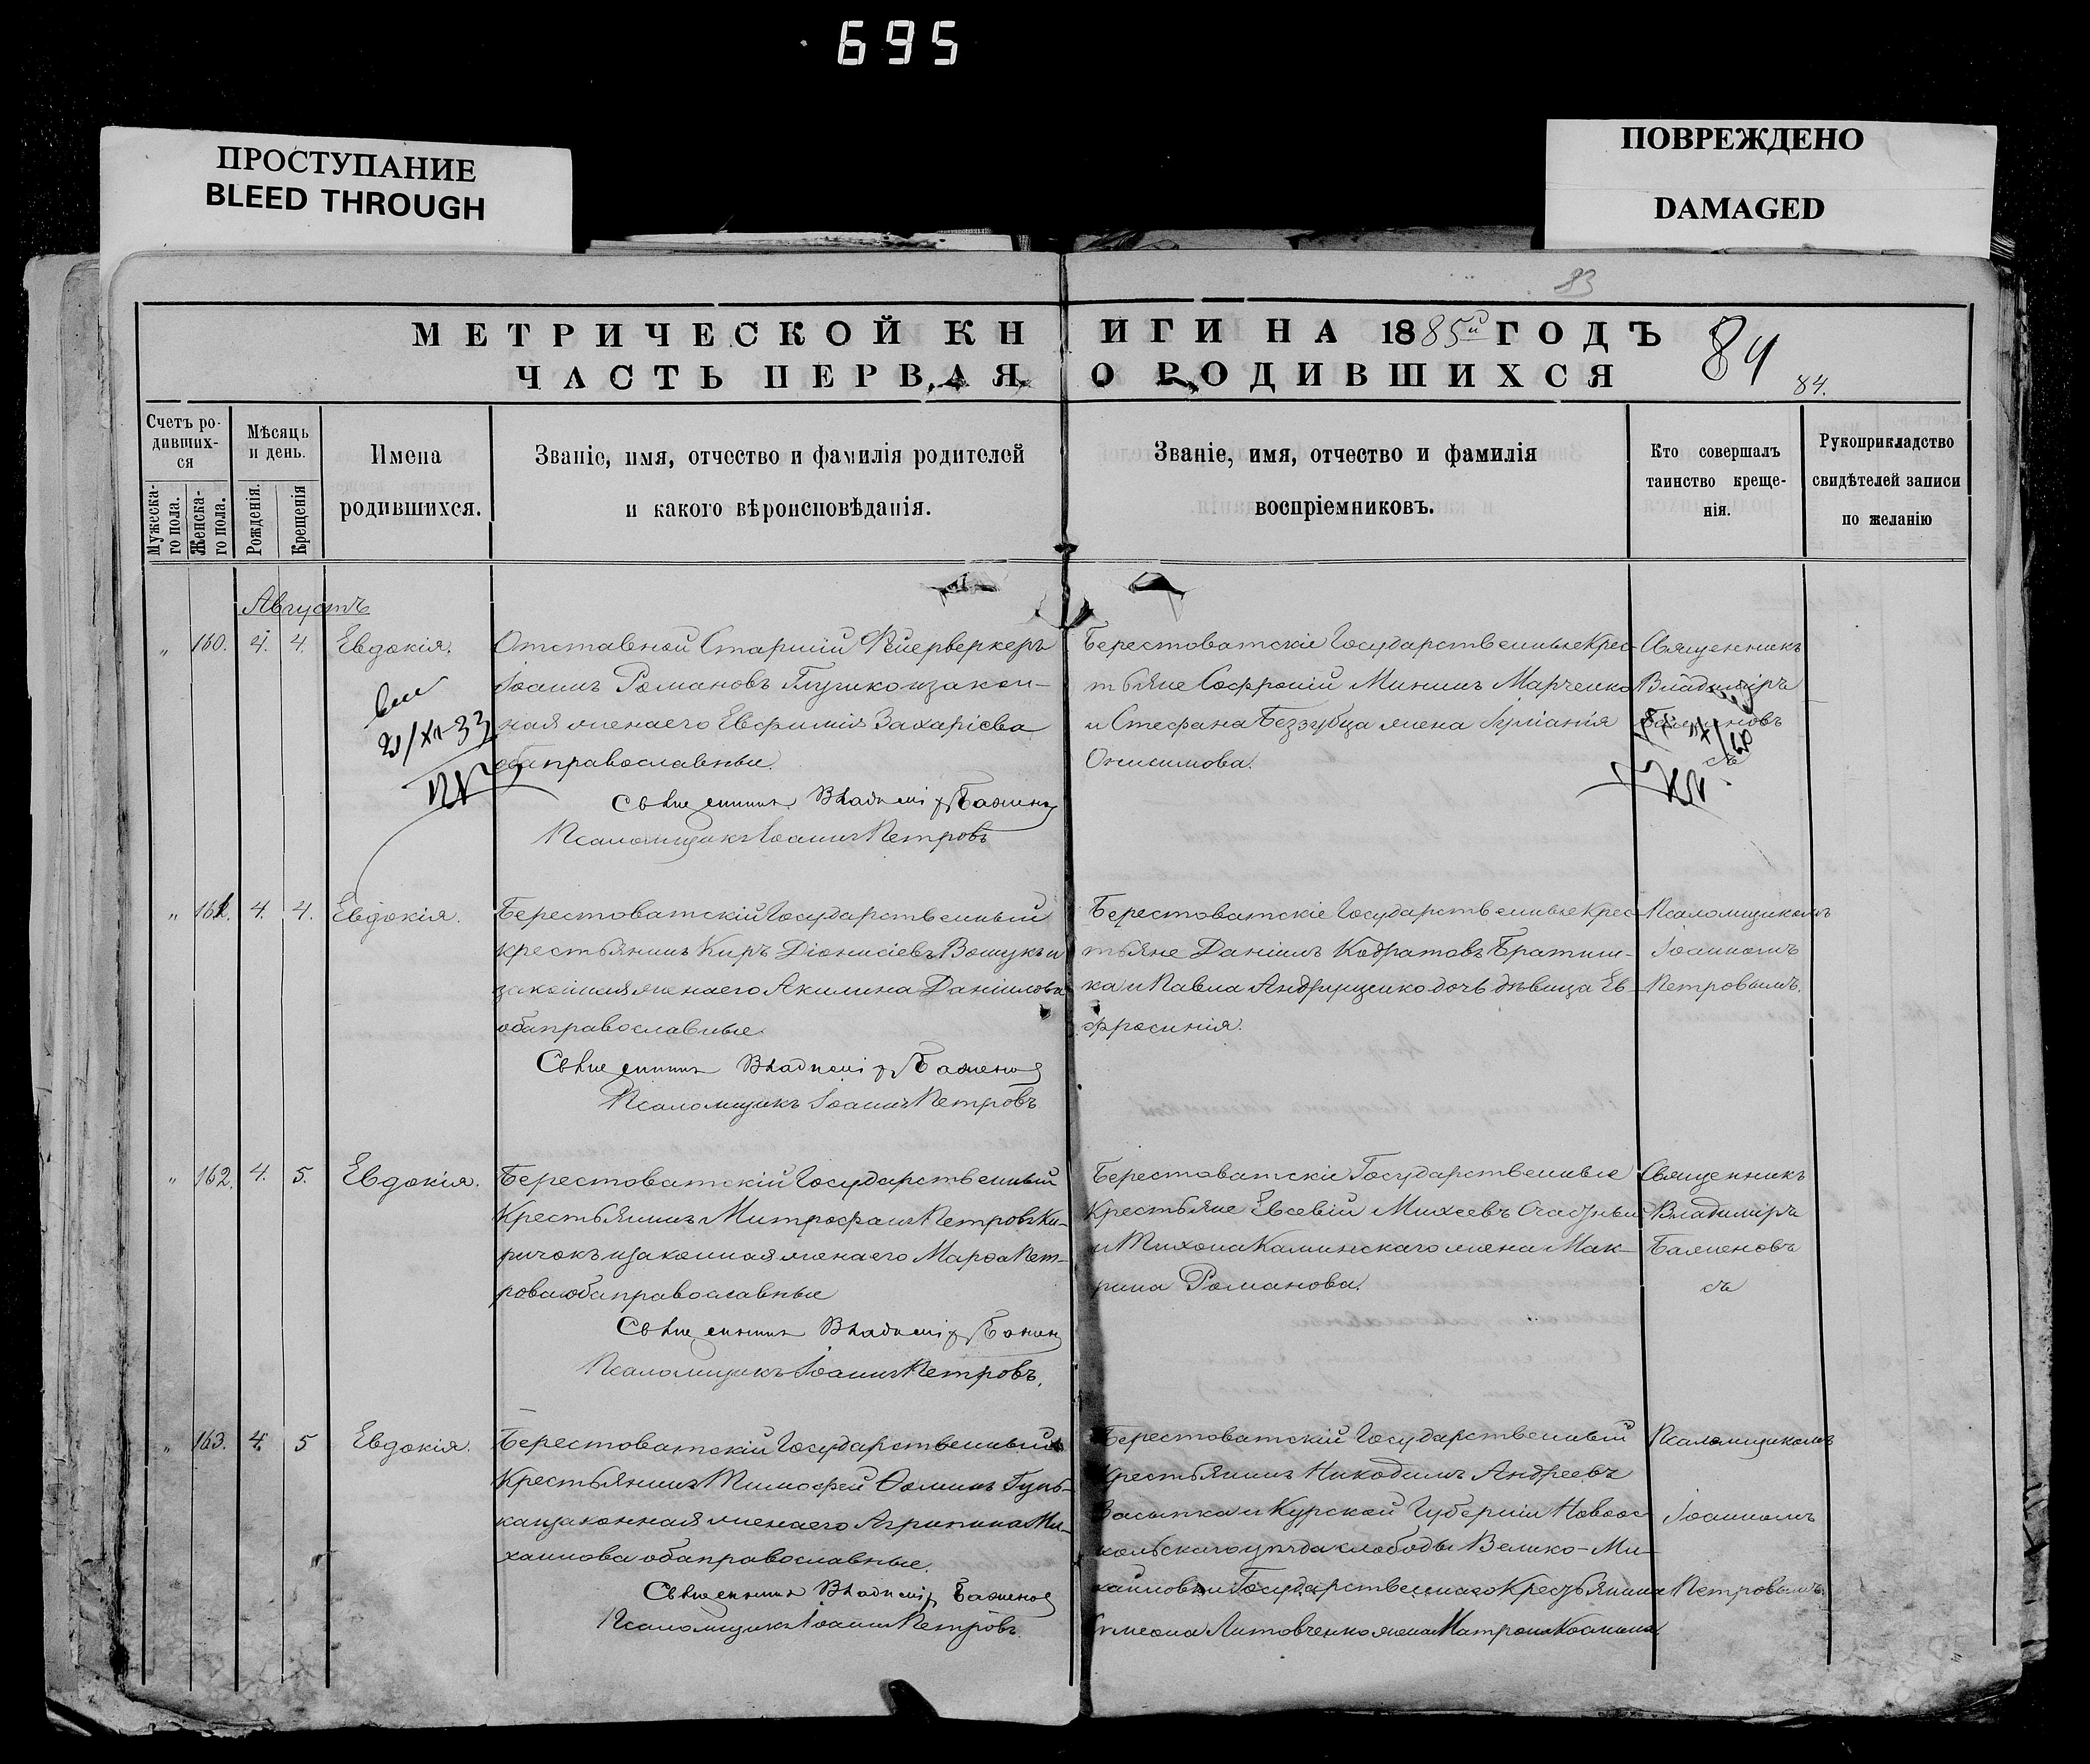 695
ПРОСТУПАНИЕ
BLEED THROUGH
ПОВРЕЖДЕНО
DAMAGED
83
МЕТРИЧЕСКОЙ КНИГИ НА 1885й ГОДЪ
84
ЧАСТЬ ПЕРВАЯ, О РОДИВШИХСЯ
84.
Счетъ ро-
дивших-
ся
Мужеска-
го пола.
Женска-
го пола.
Мѣсяцъ
и день.
Рожденія.
Крещенія
Имена
родившихся.
Званіе, имя, отчество и фамилія родителей
и какого вѣроисповѣданія.
Званіе, имя, отчество и фамилія
воспріемниковъ.
Кто совершалъ
таинство креще-
нія.
Рукоприкладство
свидѣтелей записи
по желанію
Августъ
" 160. 4. 4. Евдокія.
Отставной Старшій Фейерверкеръ
Іоаннъ Романовъ изакон-
ная женаего Евфимія Захаріева
обаправославные.
Священникъ Владиміръ Баженовъ
Псаломщикъ Іоаннъ Петровъ
Берестоватскіе Государственные Крес-
тьяне Софроній Мининъ Марченко
и Стефана Беззубца жена
Онисимова.
Священникъ
Владиміръ
Баженовъ
съ
21/XI-33
" 161. 4. 4. Евдокія.
Берестоватскій Государственный
крестьянинъ Киръ Діонисіевъ и
законная женаего Акилина Даніилова
обаправославные.
Священникъ Владиміръ Баженовъ
Псаломщикъ Іоаннъ Петровъ
Берестоватскіе Государственные Крес-
тьяне Даніилъ Кодратовъ Братиш-
ка и Павла Андрущенко дочь дѣвица Ев-
фросинія.
Псаломщикомъ
Іоанномъ
Петровымъ.
" 162. 4. 5. Евдокія.
Берестоватскій Государственный
Крестьянинъ Митрофанъ Петровъ Ки-
ричокъ изаконная женаего Марѳа Пет-
рова обаправославные
Священникъ Владиміръ Баженовъ
Псаломщикъ Іоаннъ Петровъ.
Берестоватскіе Государственные
Крестьяне Евсевій Михеевъ
и Тихона Каминскаго жена Мак-
рина Романова.
Священникъ
Владиміръ
Баженовъ
съ
" 163. 4. 5 Евдокія.
Берестоватскій Государственный
Крестьянинъ Тимофей Ѳоминъ Гунь-
ка изаконная женаего Агрипина Ми-
хаилова обаправославные.
Священникъ Владиміръ Баженовъ
Псаломщикъ Іоаннъ Петровъ.
Берестоватскій Государственный
Крестьянинъ Никодимъ Андреевъ
Засыпка и Курской Губерніи Новоос-
кольскаго уѣзда слободы Велико-Ми-
хаиловки Государственнаго Крестьянина
Симеона Литовченко жена Матрона Козмина
Псаломщикомъ
Іоанномъ
Петровымъ.